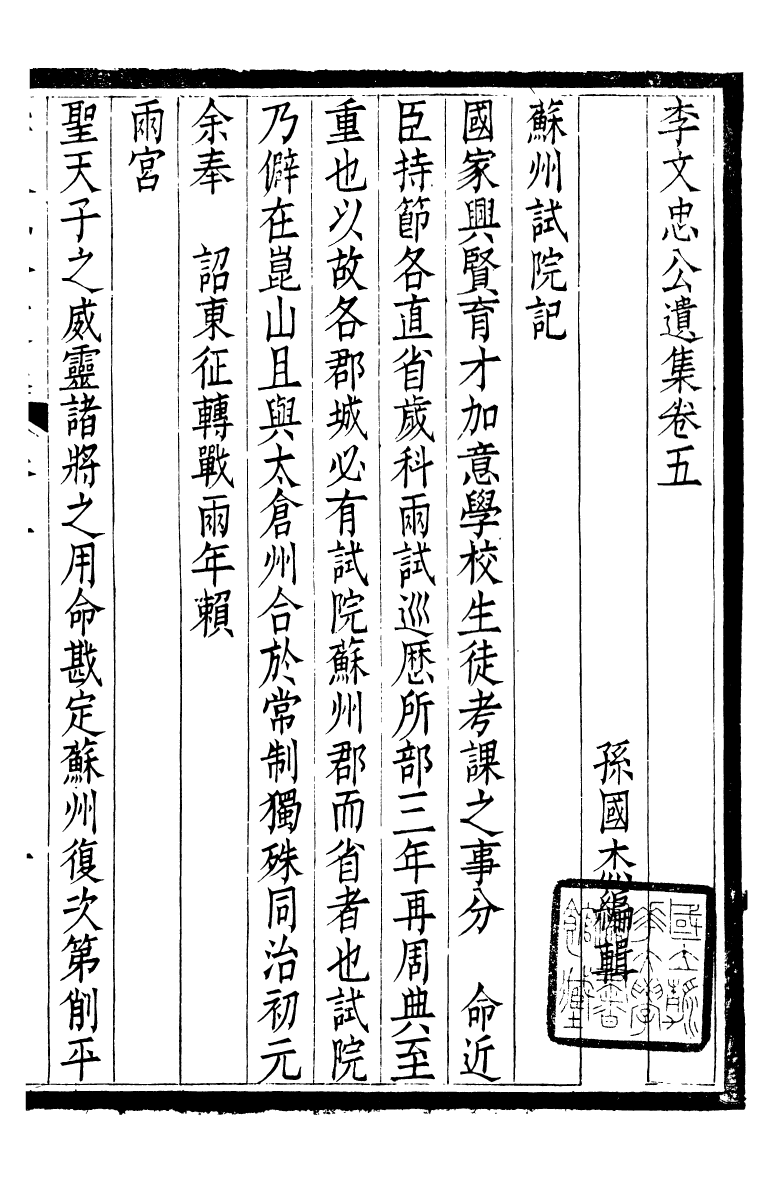 李文忠公遺集卷五
孫國杰編輯
蘇州試院記
國家興賢育才加意學校生徒考課之事分　命近
臣持節各直省歲科兩試巡歷所部三年再周典至
重也以故各郡城必有試院蘇州郡而省者也試院
乃僻在崑山且與太倉州合於常制獨殊同治初元
余奉　詔東征轉戰兩年賴
兩宮
聖天子之威靈諸將之用命戡定蘇州復次第削平